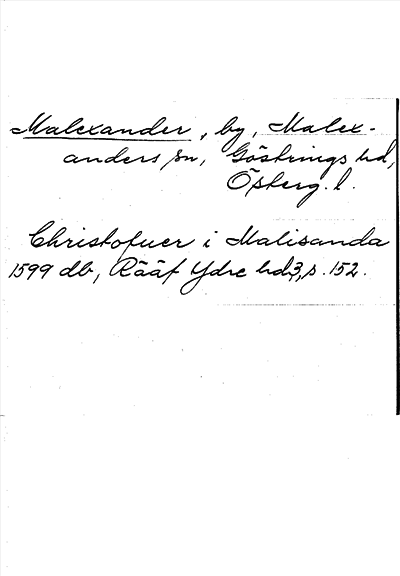 Malexander, by, Malex-
anders sn, Göstrings hd,
Östergt. l.
Christofuer i Malisanda
1599 db, Rääf Ydre hd 3, s. 152.